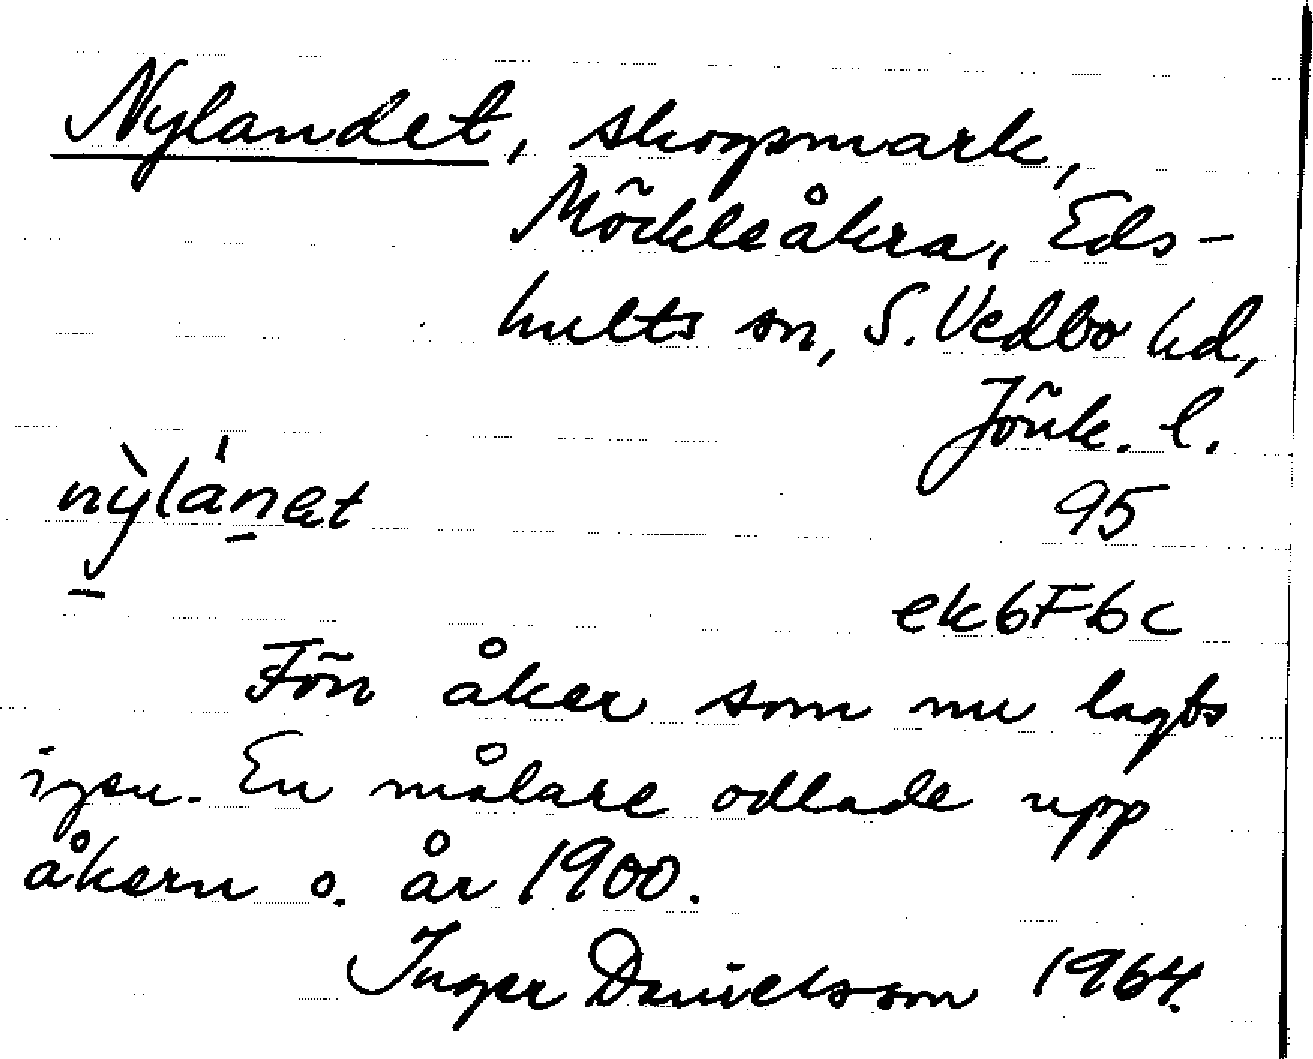 Nylandet, skogsmark,
Möckleåkra, Eds-
hults sn, S. Vedbo hd,
Jönk. l.
nỳlánet
95
ek6F6c
Förr åker som nu lagts
igen. En målare odlade upp
åkern o. år 1900.
Inger Danielsson 1964.